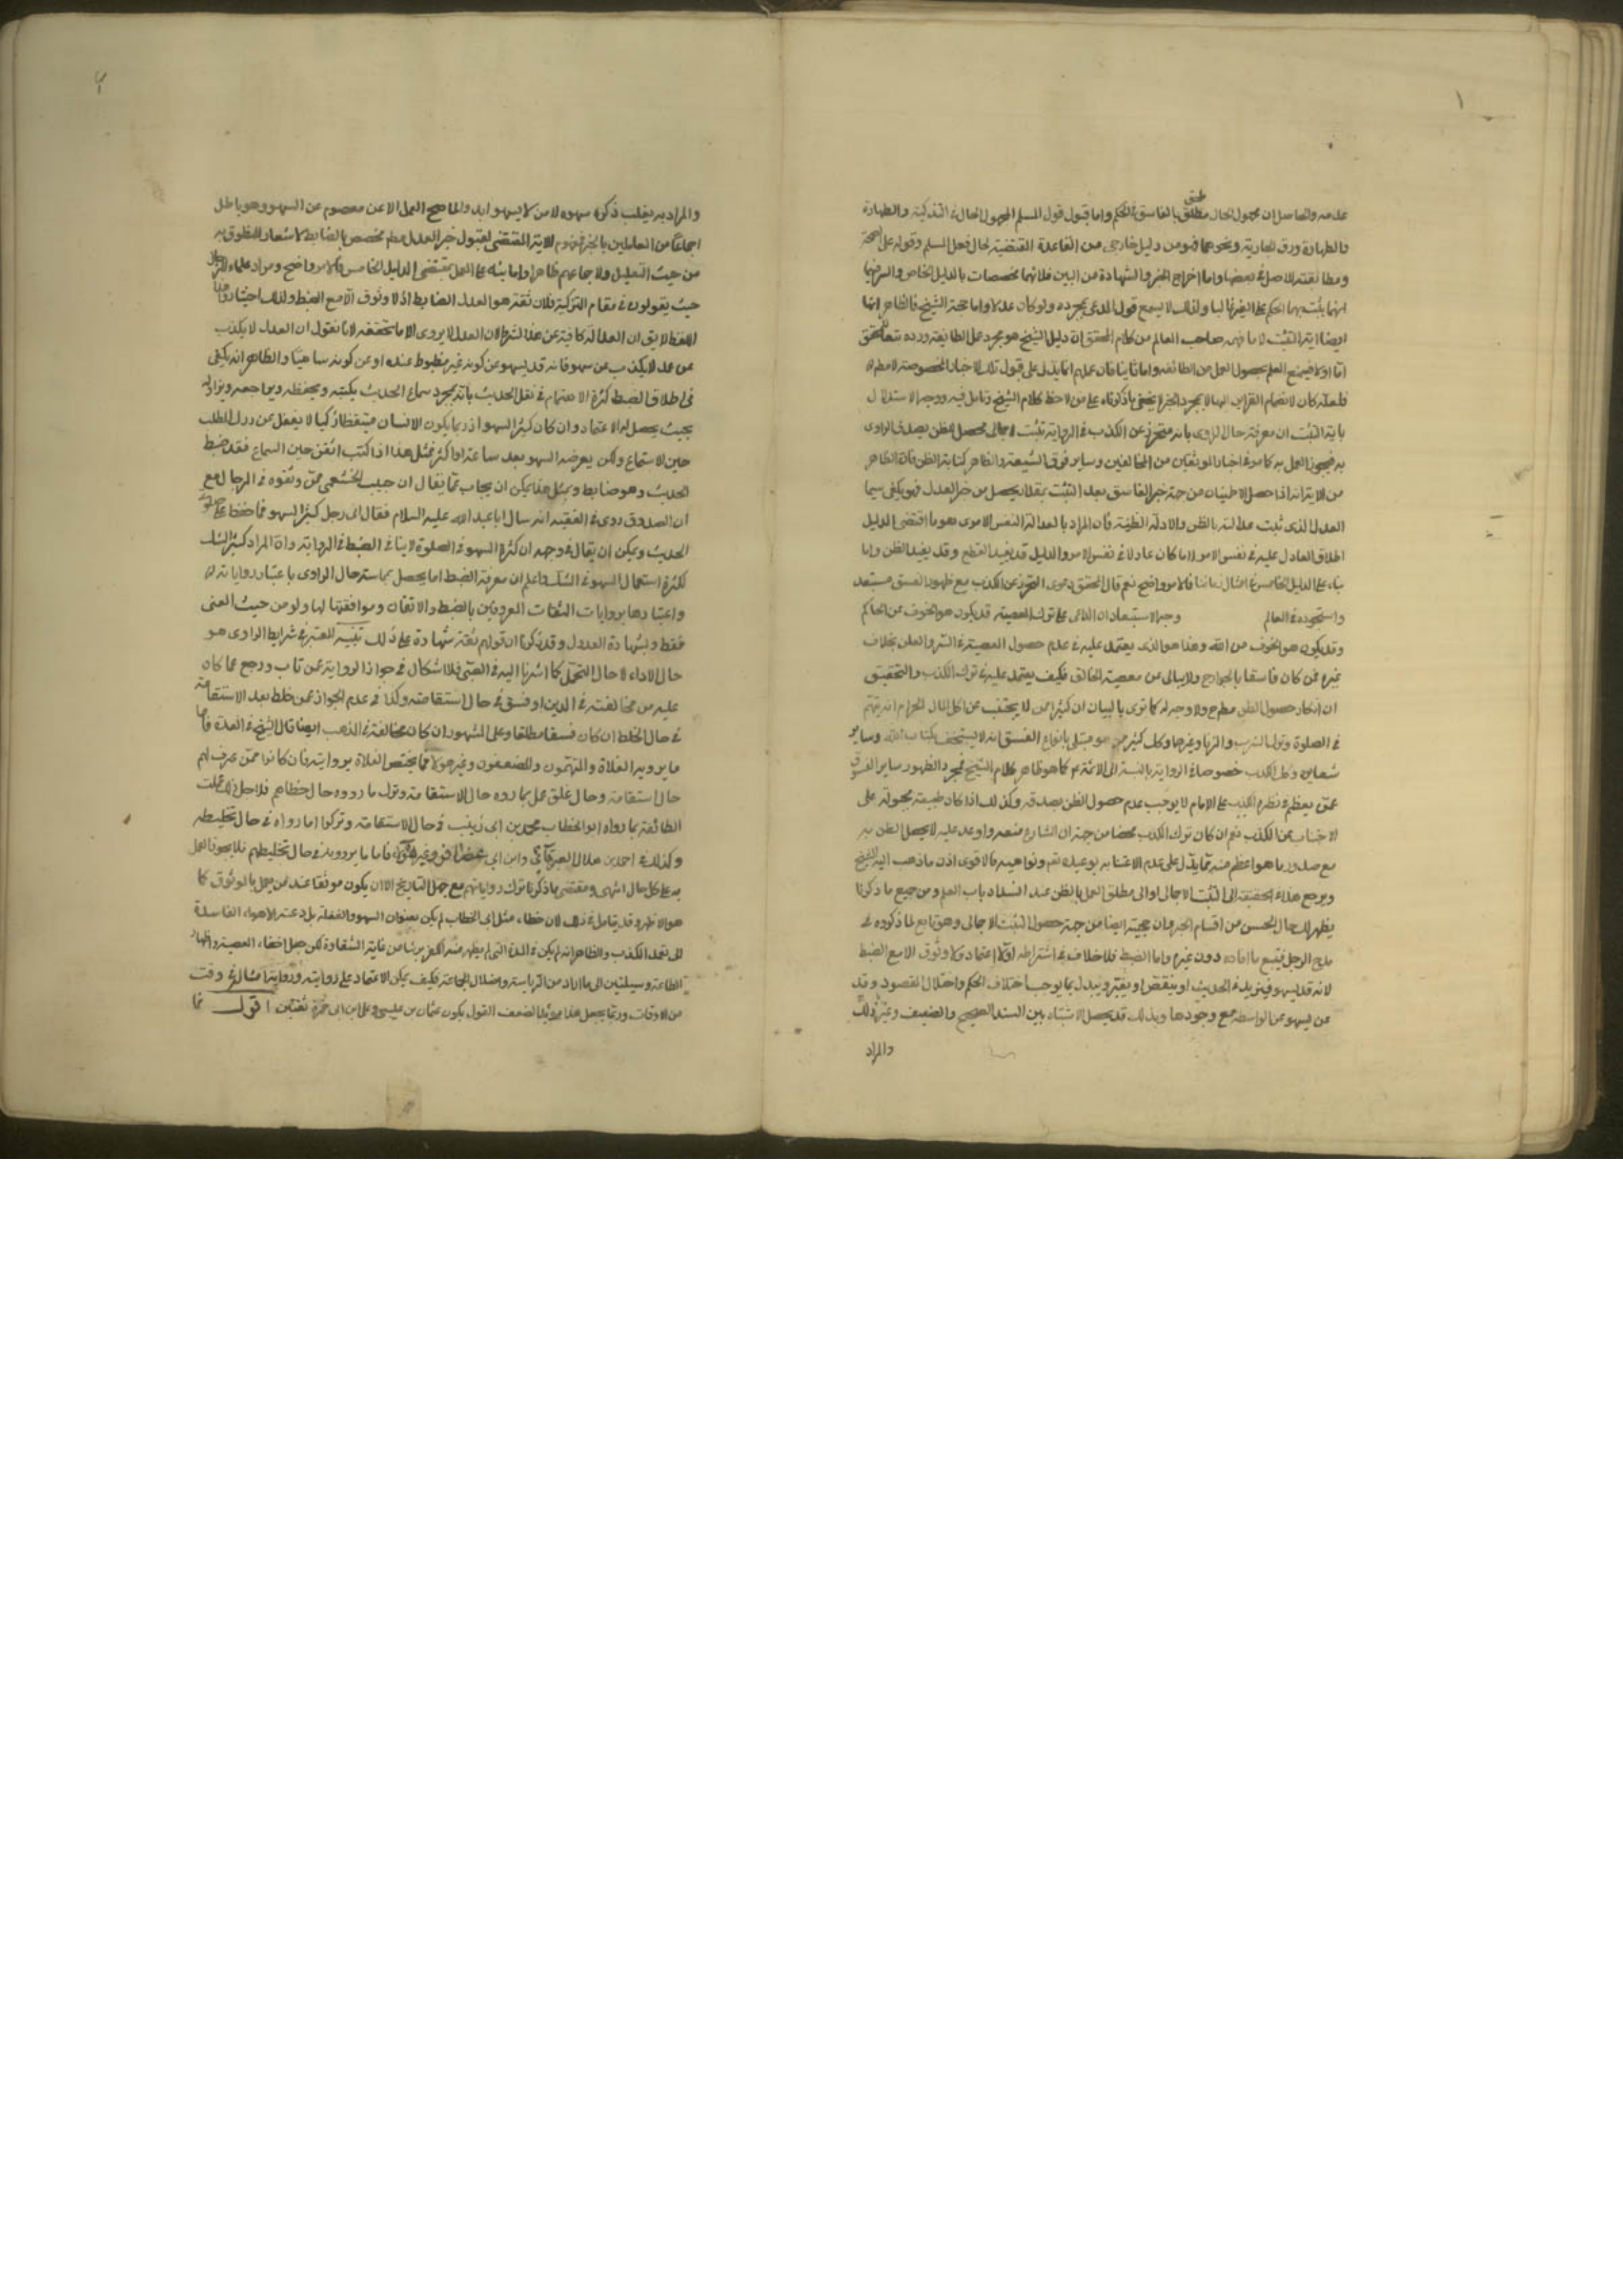 علمه والحاصل ان مجهول الحال مطلق بالفاسق في الحكم واما قبول قول المسلم المجهول الحال في التذكية والطهارة
ملحق
والطهارة ورق الجارية ونحوها فهو من دليل خارجي من القاعدة المقتضية لحال فعل المسلم وقوله على الصحة
ومطابقته للاصل في بعضها واما اخراج الخبر والشهادة من البين فلانهما مخصصات بالدليل الخاص والسر فيهما
انهما يثبت بهما الحكم على الغير غالبا ولذلك لا يسمع قول المدعي بمجرده ولو كان عدلا واما حجة الشيخ فالظاهر انها
ايضا آية التثبت لا ما فهمه صاحب المعالم من كلام المحقق ان دليل الشيخ هو مجرد عمل الطائفة ورده تبعا للمحقق
اما اولا فبمنع العلم بحصول العمل من الطائفة واما ثانيا فان عملهم انما يدل على قبول تلك الاخبار المخصوصة لا مطلقا
فلعله كان لانضمام القراين اليها لا بمجرد الخبر لا يخفى ما ذكرناه على من لاحظ كلام الشيخ وتامل فيه ووجه الاستدلال
باية التثبت ان معرفة حال الراوي بانه متحرز عن الكذب في الرواية تثبت اجمالي محصل للظن بصدق الراوي
به فيجوز العمل به كما مر في اخبار الموثقين من المخالفين وساير فرق الشيعة والظاهر كفاية الظن فان الظاهر
من الاية انه اذا حصل الاطمينان من جهة خبر الفاسق بعد التثبت بمقدار يحصل من خبر العدل فهو يكفي سيما
العدل الذي ثبت عدالته بالظن والادلة الظنية فان المراد بالعدالة النفس الامرى هو ما اقتضى الدليل
اطلاق العادل عليه في نفس الامر لا ما كان عادلا في نفس الامر والدليل قد يفيد القطع وقد يفيد الظن واما
بناء على الدليل الخامس في امثال زماننا فالامر واضح نعم قال المحقق دعوى التحرز عن الكذب مع ظهور الفسق مستبعد
واستجوده في المعالم وجه الاستبعاد ان الداعي على ترك المعصية قد يكون هو الخوف من الحاكم
وقد يكون هو الخوف من الله وهذا هو الذي يعتمد عليه في عدم حصول المعصية في السر والعلن بخلاف
غيره فمن كان فاسقا بالجوارح ولا يبالي عن معصية الخالق فكيف يعتمد عليه في ترك الكذب والتحقيق
ان انكار حصول الظن مطرح ولا وجه له كما ترى بالبيان ان كثيرا ممن لا يجتنب عن اكل المال الحرام انه يهتم
في الصلوة وترك الشرب والزنا وغيرها وكل كثير ممن هو مبتلى بانواع الفسق انه لا يستخف بكتاب الله وساير
شعايره وكل الكذب خصوصا في الرواية بالنسبة الى الائمة كما هو ظاهر كلام الشيخ فمجرد الظهور ساير الفسوق
عمن يعظم في نظره الكذب على الامام لا يوجب عدم حصول الظن بصدقه وكذلك اذا كان طبيعته مجبولة على
الاجتناب عن الكذب نعم ان كان ترك الكذب محضا من جهة ان الشارع منعه واوعد عليه لا يحصل الظن به
مع صدور ما هو اعظم منه مما يدل على عدم الاعتناء بوعيده تعم ونواهيه فالاقوى اذن ما ذهب اليه الشيخ
ويرجع هذا في الحقيقة الى التثبت الاجمالي او الى مطلق العمل بالظن عند انسداد باب العلم ومن جميع ما ذكرنا
يظهر لك حال الحسن من اقسام الخبر فان حجيته ايضا من جهة حصول التثبت الاجمالي وهو تابع لما ذكروه في
مدح الرجل فيتبع ما افاده دون غيره واما الضبط فلا خلاف في اشتراطه اذ لا اعتماد ولا وثوق الا مع الضبط
لانه قد يسهو فيزيد في الحديث او ينقص او يغير ويبدل بما يوجب اختلاف الحكم واختلال المقصود وقد
عن يسهو عن الواسطة مع وجودها وبذلك قد يحصل الاشتباه بين السند الصحيح والضعيف وغير ذلك
والمراد
والمراد به يغلب ذكره سهوه لا من لا يسهو ابدا والا لما صح العمل الا عن معصوم عن السهو وهو باطل
اجماعا من العاملين بالخبر فمفهوم الاية المقتضي لقبول خبر العدل مطم مخصص بالضابط لاشعار المنطوق به
من حيث التعليل ولاجماعهم ظاهرا واما بناء على العمل بمقتضى الدليل الخامس فالامر واضح ومراد علماء الرجال
حيث يقولون في مقام التزكية فلان ثقة هو العدل الضابط اذ لا وثوق الا مع الضبط ولذلك اختاروا هذا
اللفظ لا يق ان العدالة كافية عن هذا الشرط لان العدل لا يروى الا ما تحققه لانا نقول ان العدل لا يكذب
عن عمد لا يكذب عن سهو فانه قد يسهو عن كونه غير مضبوط عنده او عن كونه ساهيا والظاهر انه يكفي
في اطلاق الضبط كثرة الاهتمام في نقل الحديث بانه بمجرد سماع الحديث يكتبه ويحفظه ويراجعه ويزاوله
بحيث يحصل له الاعتماد وان كان كثير السهو اذ ربما يكون الانسان متيقظا ذكيا لا يغفل عن درك المطلب
حين الاستماع ولكن يعرضه السهو بعد ساعة او اكثر فمثل هذا اذا كتب اتقن حين السماع فقد ضبط
الحديث وهو ضابط وبمثل هذا يمكن ان يجاب عما يقال ان حبيب الخثعمي ممن وثقوه في الرجال مع
ان الصدوق روى في الفقيه انه سال ابا عبد الله عليه السلام فقال اني رجل كثير السهو فما احفظ على صلوتي
الحديث ويمكن ان يقال في وجهه ان كثرة السهو في الصلوة لا ينافي الضبط في الرواية وان المراد كثير الشك
لكثرة استعمال السهو في الشك واعلم ان معرفة الضبط اما يحصل بممارسة حال الراوى باعتبار رواياته
واعتبارها بروايات الثقات المعروفين بالضبط والاتقان وموافقتها لها ولو من حيث المعنى
فقط وبشهادة العدول وقد ذكرنا ان قولهم ثقة شهادة على ذلك تنبيه المعتبر في شرايط الراوى هو
حال الاداء لا حال التحمل كما اشرنا اليه في الصبي فلا اشكال في جواز الرواية عمن تاب ورجع عما كان
عليه من مخالفته في الدين او فسق في حال استقامته وكذا في عدم الجواز عمن خلط بعد الاستقامة
في حال الخلط ان كان فسقا مطلقا وعلى المشهور ان كان مخالفة في المذهب ايضا قال الشيخ في العدة فاما
ما يرويه الغلاة والمتهمون والمضعفون وغير هؤلاء فما يختص الغلاة بروايته فان كانوا ممن عرف لهم
حال استقامة وحال غلو عمل بما رووه حال الاستقامة وترك ما رووه حال خطاهم فلاجل ذلك عملت
الطائفة بما رواه ابو الخطاب محمد بن ابي زينب في حال الاستقامة وتركوا ما رواه في حال تخليطه
وكذلك في احمد بن هلال العبرتائي وابن ابي عذافر وغير هؤلاء فاما ما يروونه في حال تخليطهم فلا يجوز العمل
به على كل حال انتهى ومقتضى ما ذكرنا ترك رواياتهم مع جهل التاريخ الا ان يكون موثقا عند من يعمل بالموثوق كما
هو الاظهر وقد يتامل في ذلك لان خطاء مثل ابي الخطاب لم يكن بعنوان السهو والغفلة بل دعته الاهواء الفاسدة
الى تعمد الكذب والظاهر انه لم يكن في المدة التي لم يظهر منه الكفر بريئا من غاية الشقاوة لكن جعل اخفاء المعصية واظهار
الطاعة وسيلتين الى ما اراد من الرياسة واضلال الجماعة فكيف يمكن الاعتماد على روايته ورواية امثاله في وقت
من الاوقات وربما يجعل هذا مؤيدا لضعف القول بكون عثمان بن عيسى وعلي ابن ابي حمزة ثقتين اقول فما